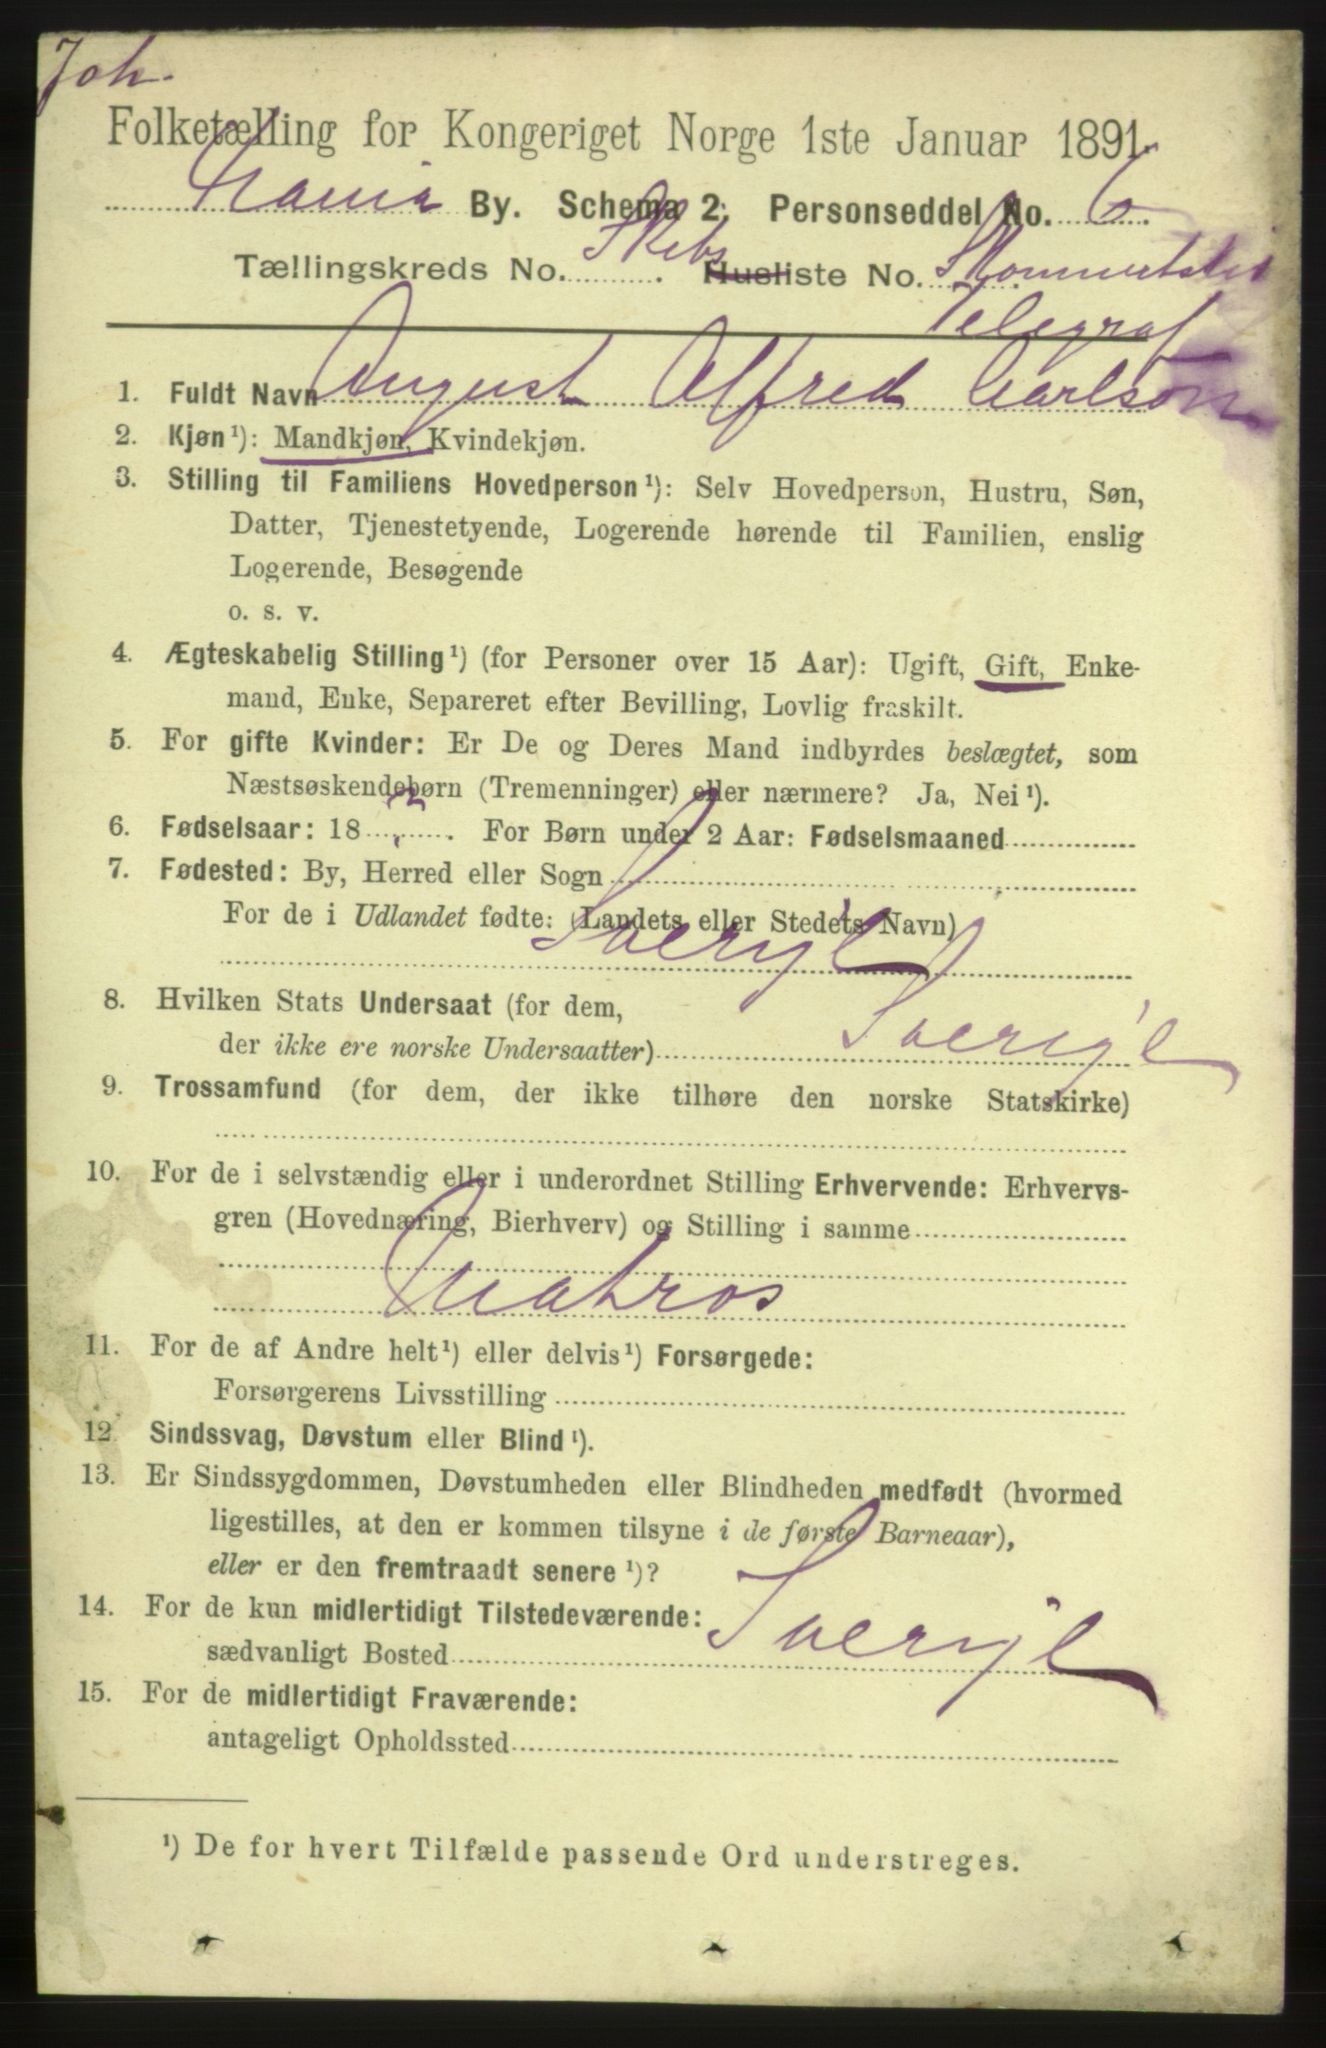 Joh.
Folketælling for Kongeriget Norge 1ste Januar 1891.
By. Schema 2. Personseddel No. 6.
Tællingskreds No. Skibs Husliste No.
Telegraf
1. Fuldt Navn August Alfred Carlson
2. Kjøn¹): Mandkjøn, Kvindekjøn.
3. Stilling til Familiens Hovedperson¹): Selv Hovedperson, Hustru, Søn,
Datter, Tjenestetyende, Logerende hørende til Familien, enslig
Logerende, Besøgende
o. s. v.
4. Ægteskabelig Stilling¹) (for Personer over 15 Aar): Ugift, Gift, Enke-
mand, Enke, Separeret efter Bevilling, Lovlig fraskilt.
5. For gifte Kvinder: Er De og Deres Mand indbyrdes beslægtet, som
Næstsøskendebørn (Tremenninger) eller nærmere? Ja, Nei¹).
6. Fødselsaar: 18 ?. For Børn under 2 Aar: Fødselsmaaned
7. Fødested: By, Herred eller Sogn
For de i Udlandet fødte: (Landets eller Stedets Navn)
Sverige
8. Hvilken Stats Undersaat (for dem,
der ikke ere norske Undersaatter) Sverige
9. Trossamfund (for dem, der ikke tilhøre den norske Statskirke)
10. For de i selvstændig eller i underordnet Stilling Erhvervende: Erhvervs-
gren (Hovednæring, Bierhverv) og Stilling i samme
Matros
11. For de af Andre helt¹) eller delvis¹) Forsørgede:
Forsørgerens Livsstilling
12. Sindssvag, Døvstum eller Blind¹).
13. Er Sindssygdommen, Døvstumheden eller Blindheden medfødt (hvormed
ligestilles, at den er kommen tilsyne i de første Barneaar),
eller er den fremtraadt senere¹)?
14. For de kun midlertidigt Tilstedeværende:
sædvanligt Bosted Sverige
15. For de midlertidigt Fraværende:
antageligt Opholdssted
¹) De for hvert Tilfælde passende Ord understreges.